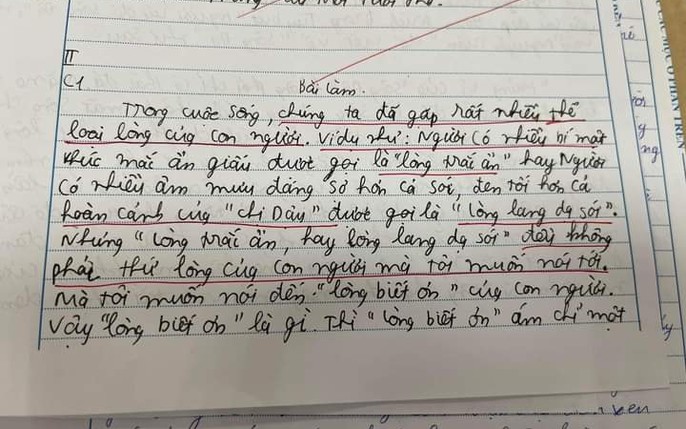 II
C1
Bài làm.
Trong cuộc sống, chúng ta đã gặp rất nhiều thể
loại lòng của con người. Ví dụ như: Người có nhiều bí mật
thức mắc ẩn giấu được gọi là "lòng trắc ẩn" hay Người
có nhiều âm mưu đáng sợ hơn cả sói, đen tối hơn cả
hoàn cảnh của "chị Dậu" được gọi là "lòng lang dạ sói".
Nhưng "lòng trắc ẩn, hay lòng lang dạ sói" đều không
phải thứ lòng của con người mà tôi muốn nói tới.
Mà tôi muốn nói đến "lòng biết ơn" của con người.
Vậy "lòng biết ơn" là gì. Thì "lòng biết ơn" ám chỉ một